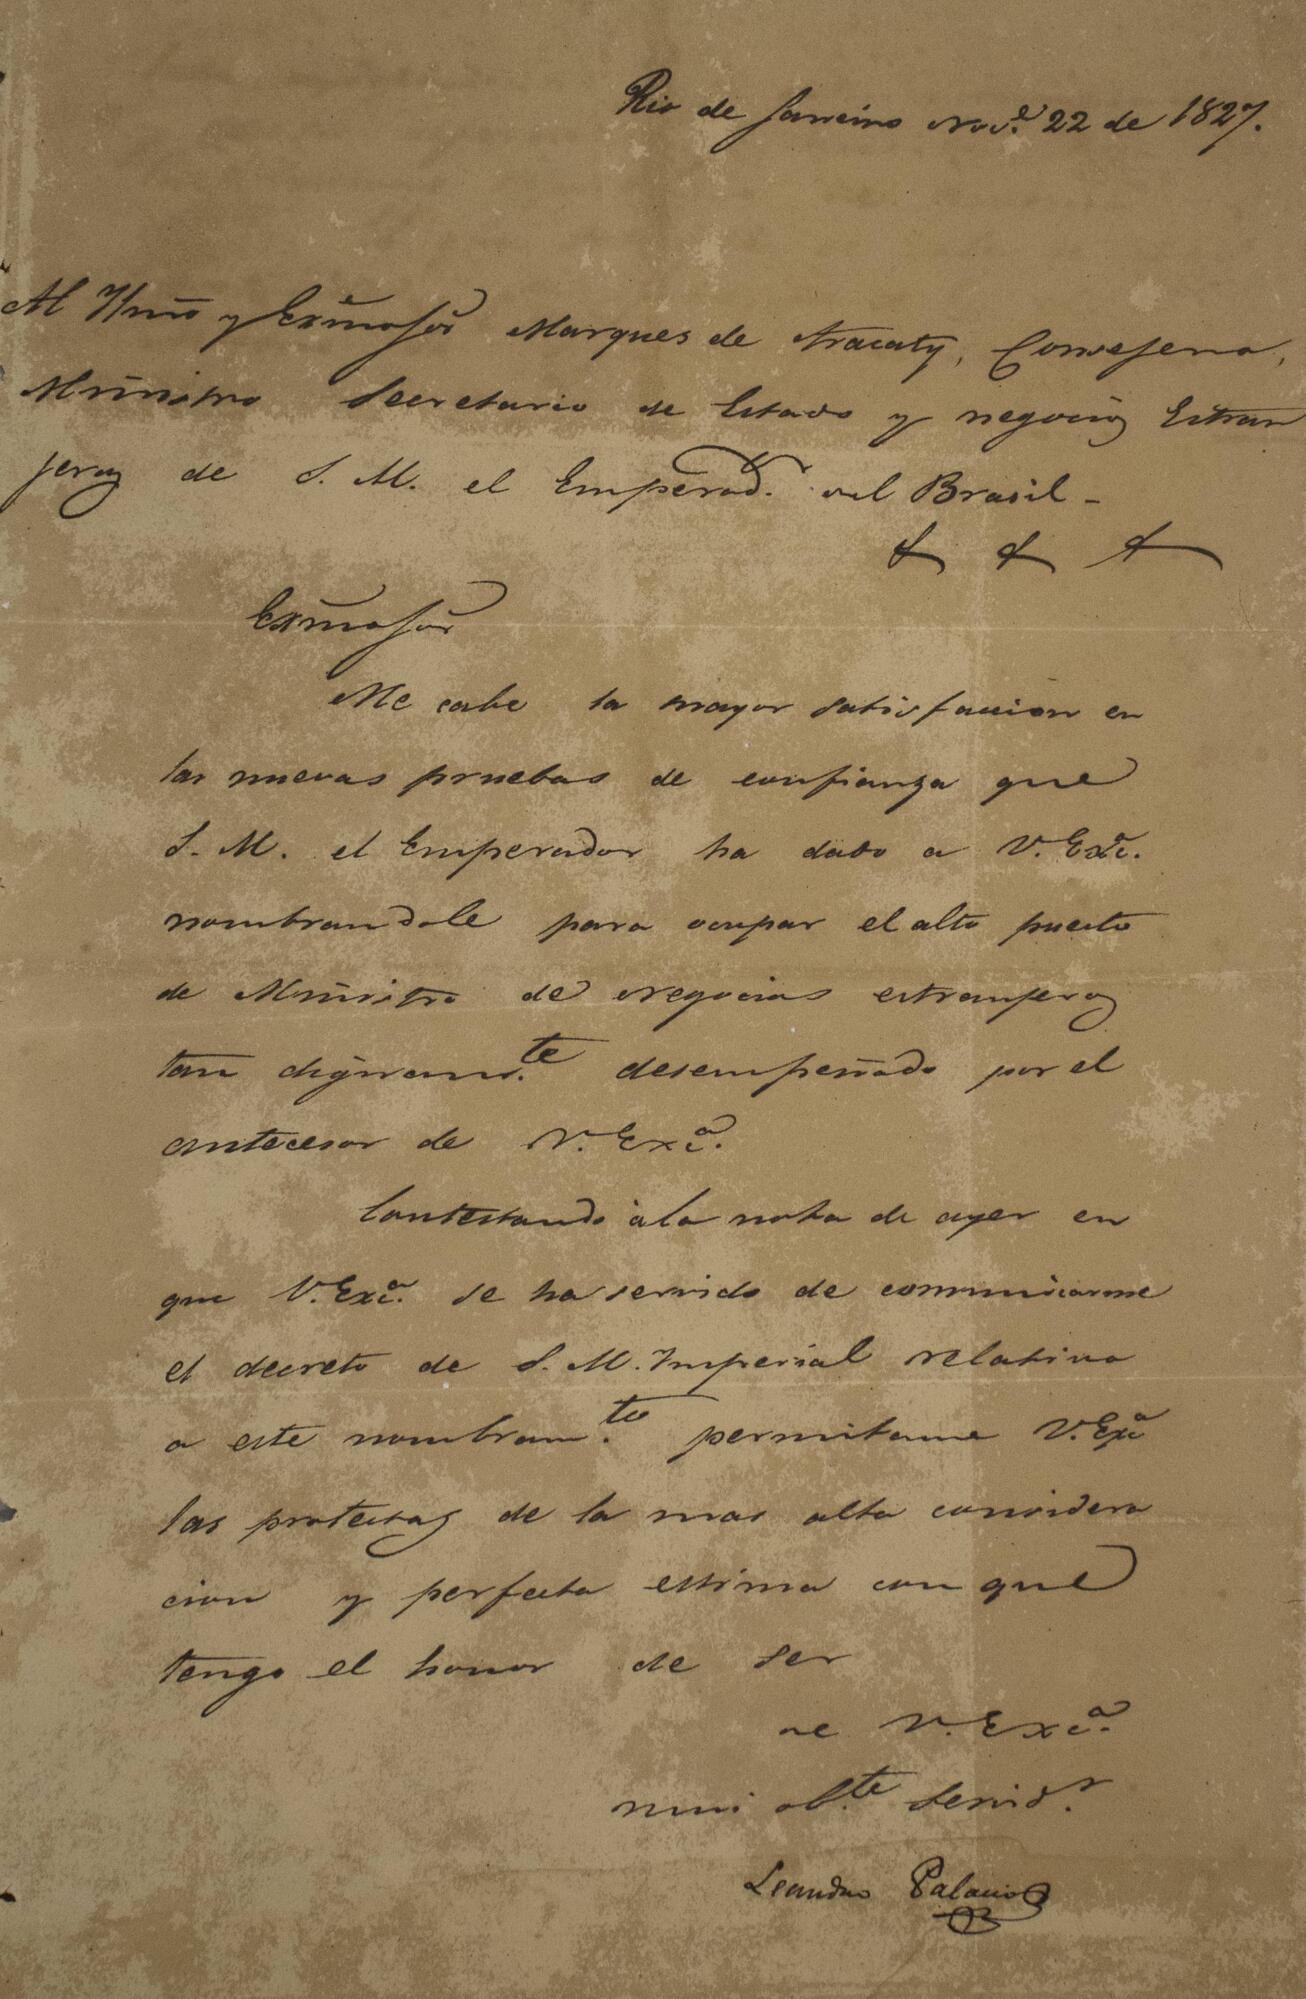 Rio de Janeiro Nov.e 22 de 1827.
Al Ylmõ y Exmõ Sõr Marques de Aracaty, Consejero,
Ministro Secretario de Estado y negocios Estran
jeros de S. M. el Emperad.r del Brasil -
& & &
Exmõ Sõr
Me cabe la mayor satisfaccion en
las nuevas pruebas de confianza que
S. M. el Emperador ha dado a V. Exc.a
nombrandole para ocupar el alto puesto
de Ministro de negocios estranjeros
tan dignam.te desempeñado por el
antecesor de V. Exc.a
Contestando à la nota de ayer en
que V. Exc.a se ha servido de comunicarme
el decreto de S. M. Imperial relativo
a este nombram.to permitame V. Exc.a
las protestas de la mas alta considera
cion y perfecta estima con que
tengo el honor de ser
de V. Exc.a
mui ob.te servid.r
Leandro Palacios